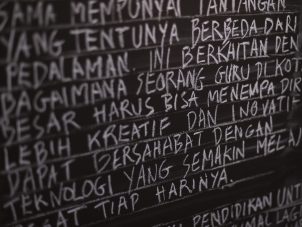 SAMA MEMPUNYAI TANTANGAN
YANG TENTUNYA BERBEDA DARI
PEDALAMAN INI BERKAITEN DEN
BAGAIMANA SEORANG GURU DI KOT
BESAR HARUS BISA MENEMPA DIR
LEBIH KREATIF DAN INOVATIF
DAPAT BERSAHABAT DENGAN
TEKNOLOGI YANG SEMAKIN MELAJ
PESAT TIAP HARINYA.
PENDIDIKAN UNTU
MAL LAGI